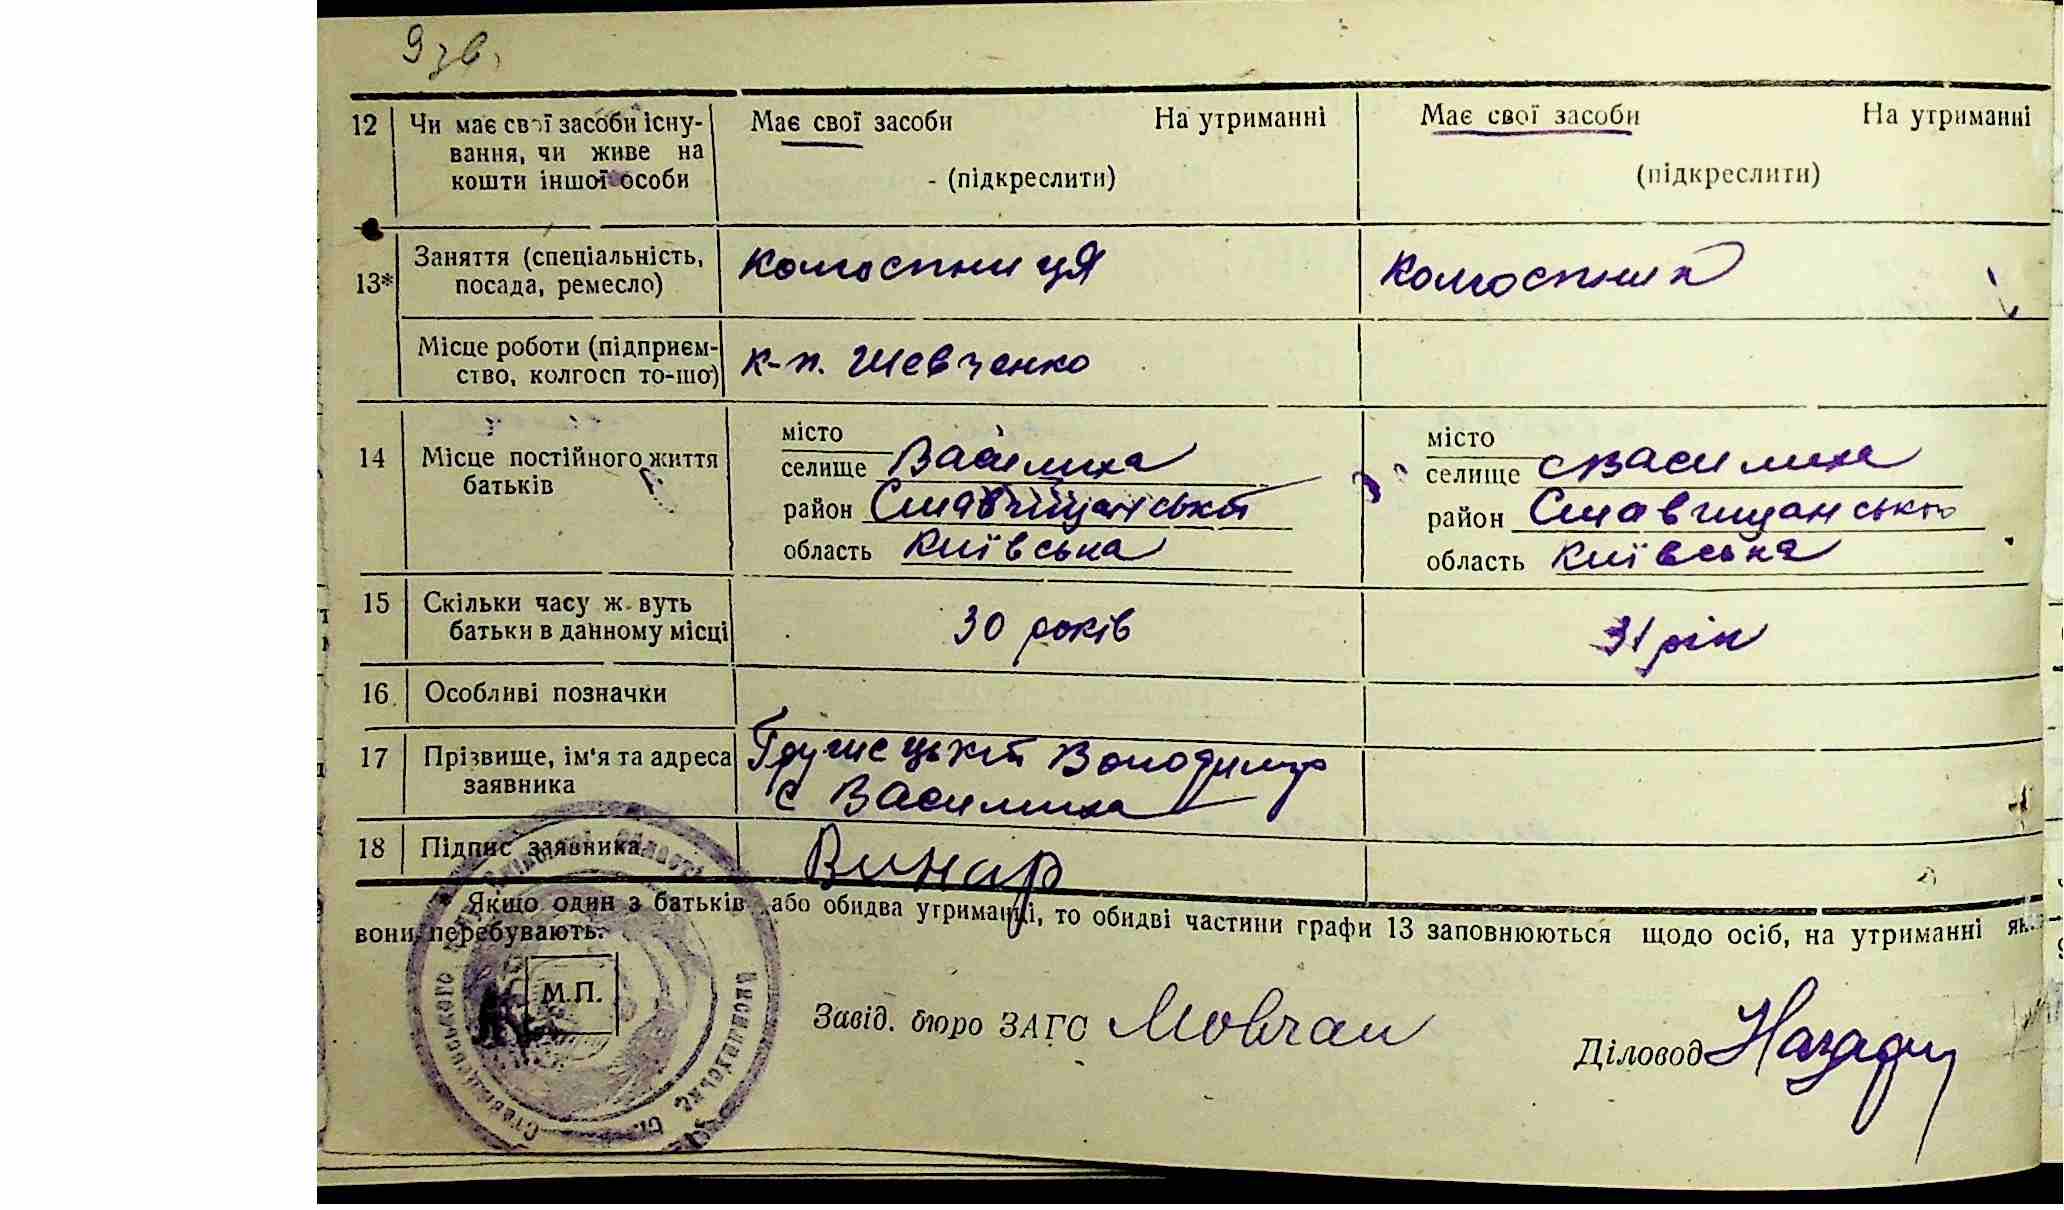 9 зв.
12 Чи має свої засоби існу- Має свої засоби На утриманні Має свої засоби На утриманні
вання, чи живе на
кошти іншої особи - (підкреслити) (підкреслити)
13* Заняття (спеціальність, Колгоспниця Колгоспник
посада, ремесло)
Місце роботи (підприєм- к-п. Шевченко
ство, колгосп то-що)
місто місто
14 Місце постійного життя селище Василиха селище с Василиха
батьків район Ставищанський район Ставищанського
область Київська область Київська
15 Скільки часу живуть 30 років 31 рік
батьки в данному місці
16 Особливі позначки
17 Прізвище, ім'я та адреса Володимир
заявника с Василиха
18 Підпис заявника Винар
Якщо один з батьків або обидва утриманці, то обидві частини графи 13 заповнюються щодо осіб, на утриманні як.
вони перебувають.
М.П.
Завід. бюро ЗАГС Мовчан
Діловод